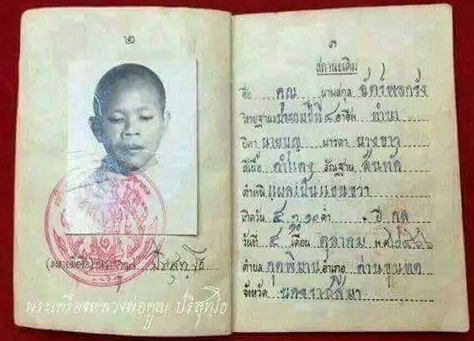 ๒
ปริสุทฺโธ
พระเครื่องหลวงพ่อคูณ ปริสุทฺโธ
๓
สถานเดิม
ชื่อ คูณ นามสกุล ฉัตร์พลกรัง
วิทยฐานะ ปีที่ ๔ อาชีพ ทำนา
บิดา นายบุญ มารดา นางขาว
สีเนื้อ ดำแดง สัณฐาน สันทัด
ตำหนิ แผลเป็นแขนขวา
เกิดวัน ๕ ค่ำ ปี กุล
วันที่ ๔ เดือน ตุลาคม พ.ศ. ๒๔๖๖
ตำบล กุดพิมาน อำเภอ ด่านขุนทด
จังหวัด นครราชสีมา